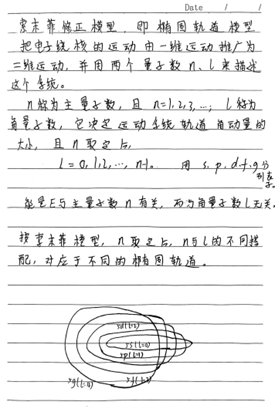 Date / /
索末菲修正模型，即椭圆轨道模型
把电子绕核的运动由一维运动推广为
二维运动，并用两个量子数 n、l 来描述
这个系统。
n 称为主量子数，且 n=1,2,3,…; l 称为
角量子数，它决定运动系统轨道角动量的
大小，且 n 取定后，
l = 0,1,2,…, n-1。 用 s.p.d.f.g 分别表示。
能量E与主量子数 n 有关，而与角量子数 l 无关。
按索末菲模型，n 取定后，n与l的不同搭
配，对应于不同的椭圆轨道。
5d(l=2)
5s(l=0)
5p(l=1)
5g(l=4)
5f(l=3)